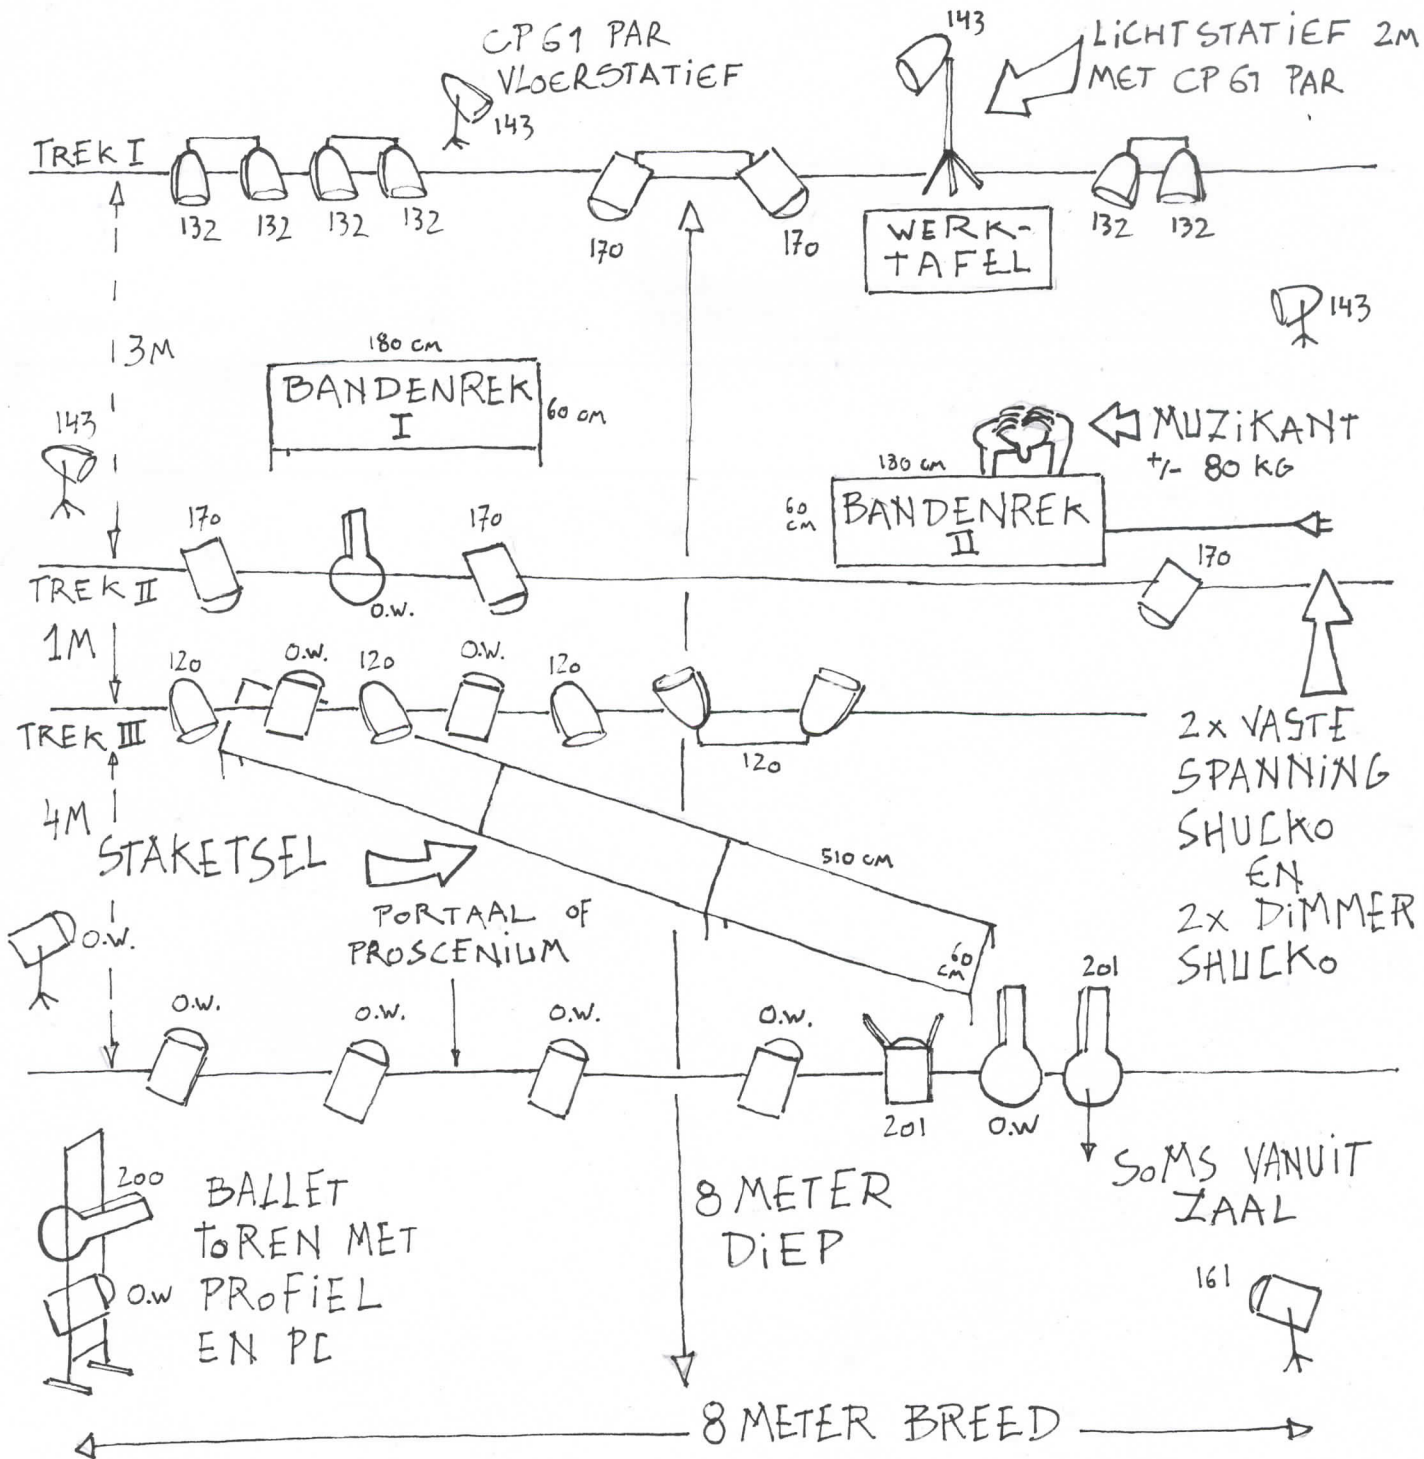 CP61 PAR
VLOERSTATIEF
143
143
LiCHTSTATiEF 2M
MET CP61 PAR
TREK I
132
132
132
132
170
170
WERK-
TAFEL
132
132
143
3M
180 cm
BANDENREK
I
60 cm
143
MUZiKANT
+/- 80 KG
180 cm
60
cm
BANDENREK
II
170
O.W.
170
170
TREK II
1M
120
O.W.
120
O.W.
120
120
TREK III
2x VASTE
SPANNiNG
SHUCKO
EN
2x DiMMER
SHUCKO
4M
STAKETSEL
510 cm
60
cm
PORTAAL OF
PROSCENiUM
O.W.
O.W.
O.W.
O.W.
O.W.
201
O.W
201
SOMS VANUiT
ZAAL
200
O.W
BALLET
TOREN MET
PROFiEL
EN PC
8 METER
DiEP
161
8 METER BREED